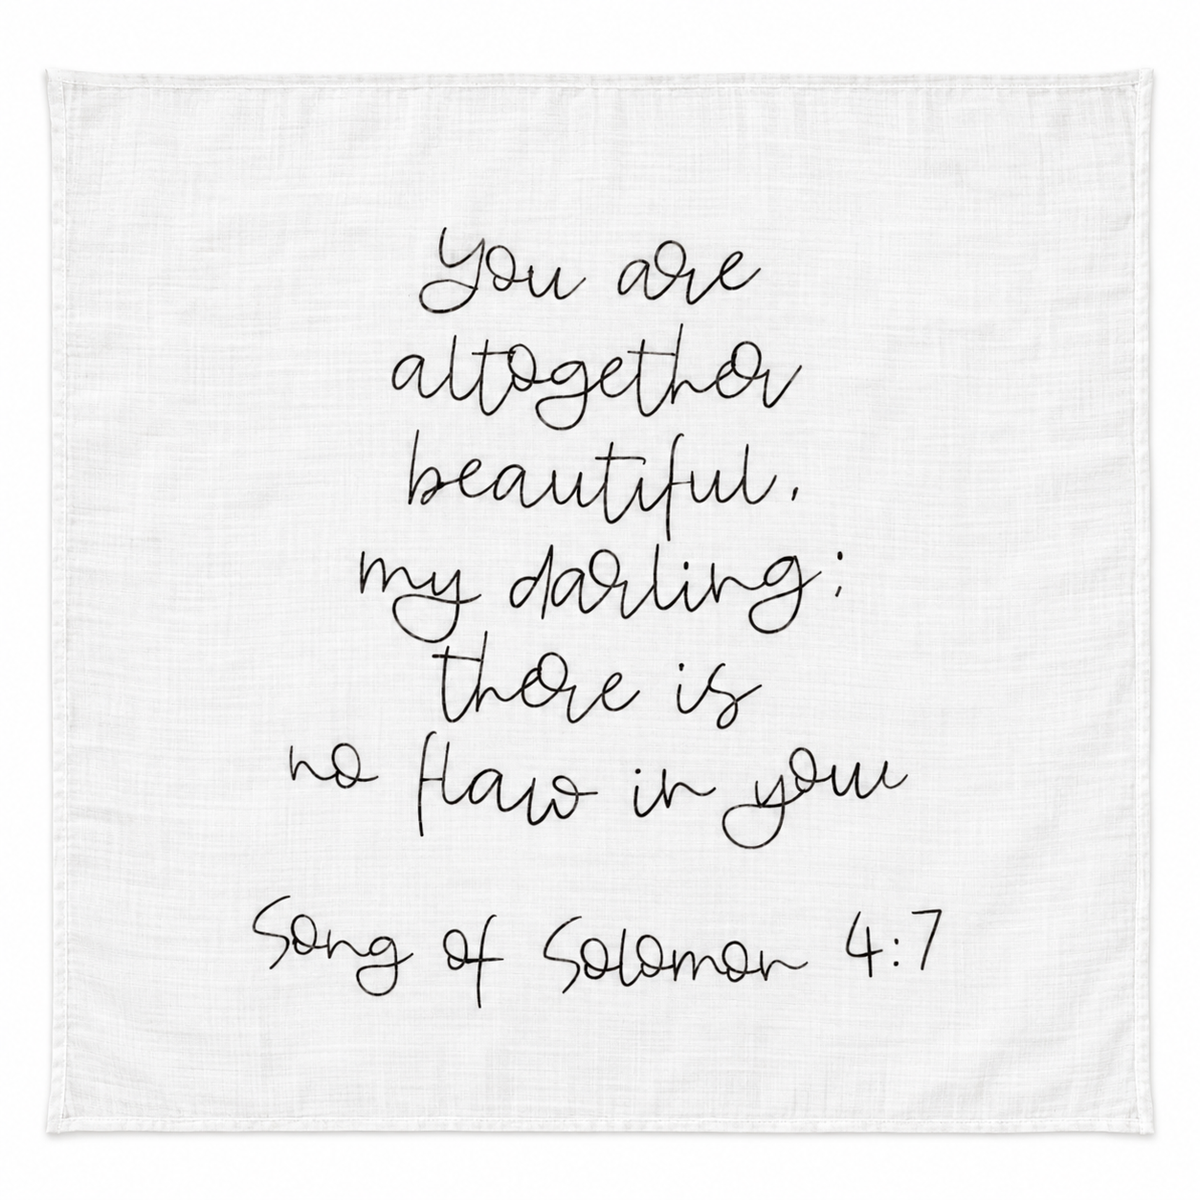 You are
altogether
beautiful,
my darling;
there is
no flaw in you
Song of Solomon 4:7